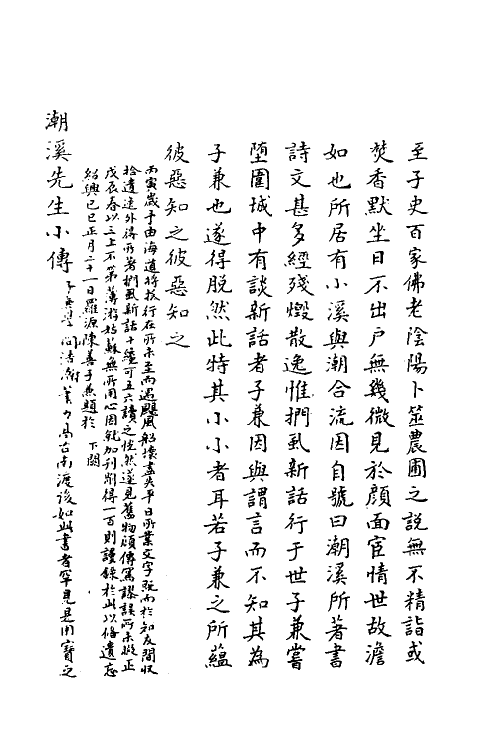 至子史百家佛老陰陽卜筮農圃之說無不精詣或
焚香默坐日不出戶無幾微見於顏面宦情世故澹
如也所居有小溪與潮合流因自號曰潮溪所著書
詩文甚多經殘燬散逸惟捫虱新話行于世子兼嘗
墮圍城中有談新話者子兼因與謂言而不知其為
子兼也遂得脫然此特其小小者耳若子兼之所蘊
彼惡知之彼惡知之
丙寅歲予由海道將抵行在所未至而遇颶風船壞盡失平日所業文字既而於知友間收
拾遺逸外得所著捫虱新話十纔可五六讀之恍然遂見舊物頗傳寫謬誤所未暇正
戊辰春以三上不第薄游姑蘇無所用心因就加刊削得一百則謹錄於此以備遺忘
紹興己巳正月二十一日羅源陳善子兼題於 下闕
潮溪先生小傳
高古南渡後如此書者罕見是用寶之